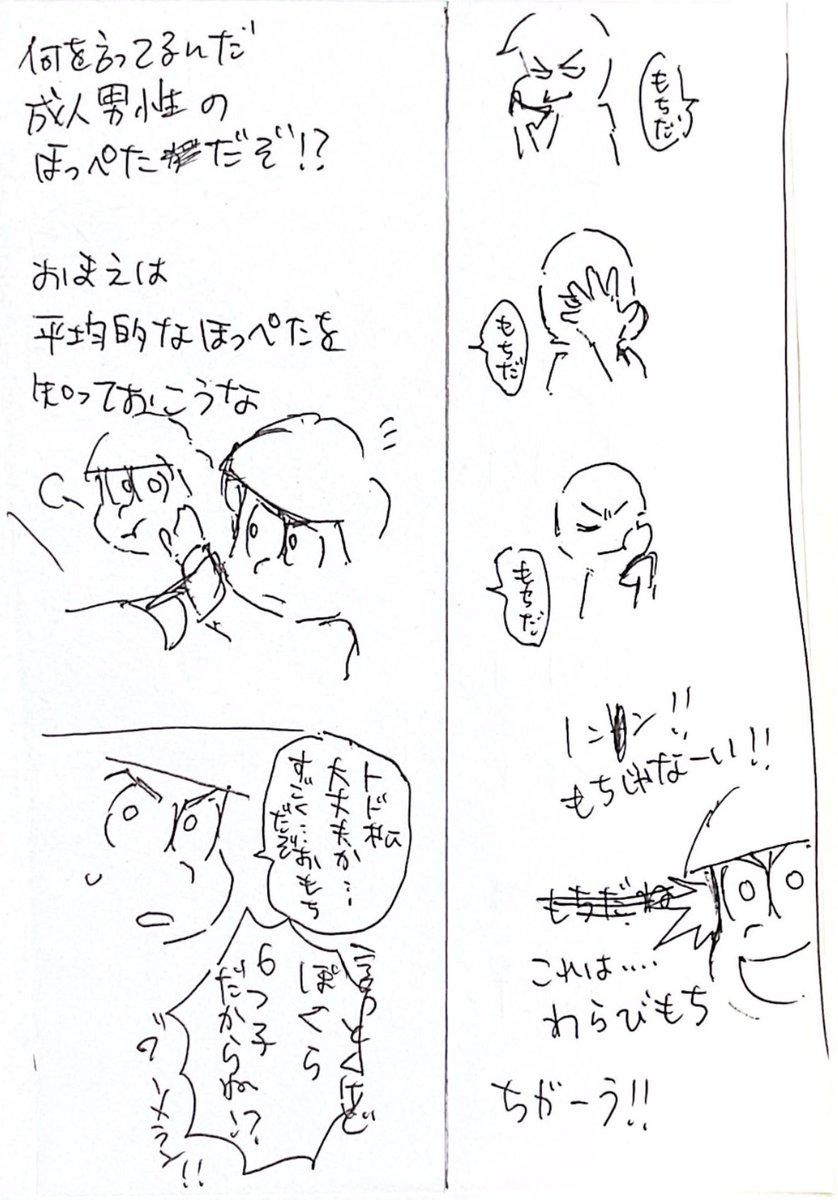 もちだ
もちだ
もちだ
もちじゃなーい!!
これは‥‥
わらびもち
ちがーう!!
何を言ってるんだ
成人男性の
ほっぺただぞ!?
おまえは
平均的なほっぺたを
知っておこうな
トド松
大丈夫か…
すごく…おもち
だぞ
言っとくけど
ぼくら
6つ子
だからね!?
ブーメラン!!